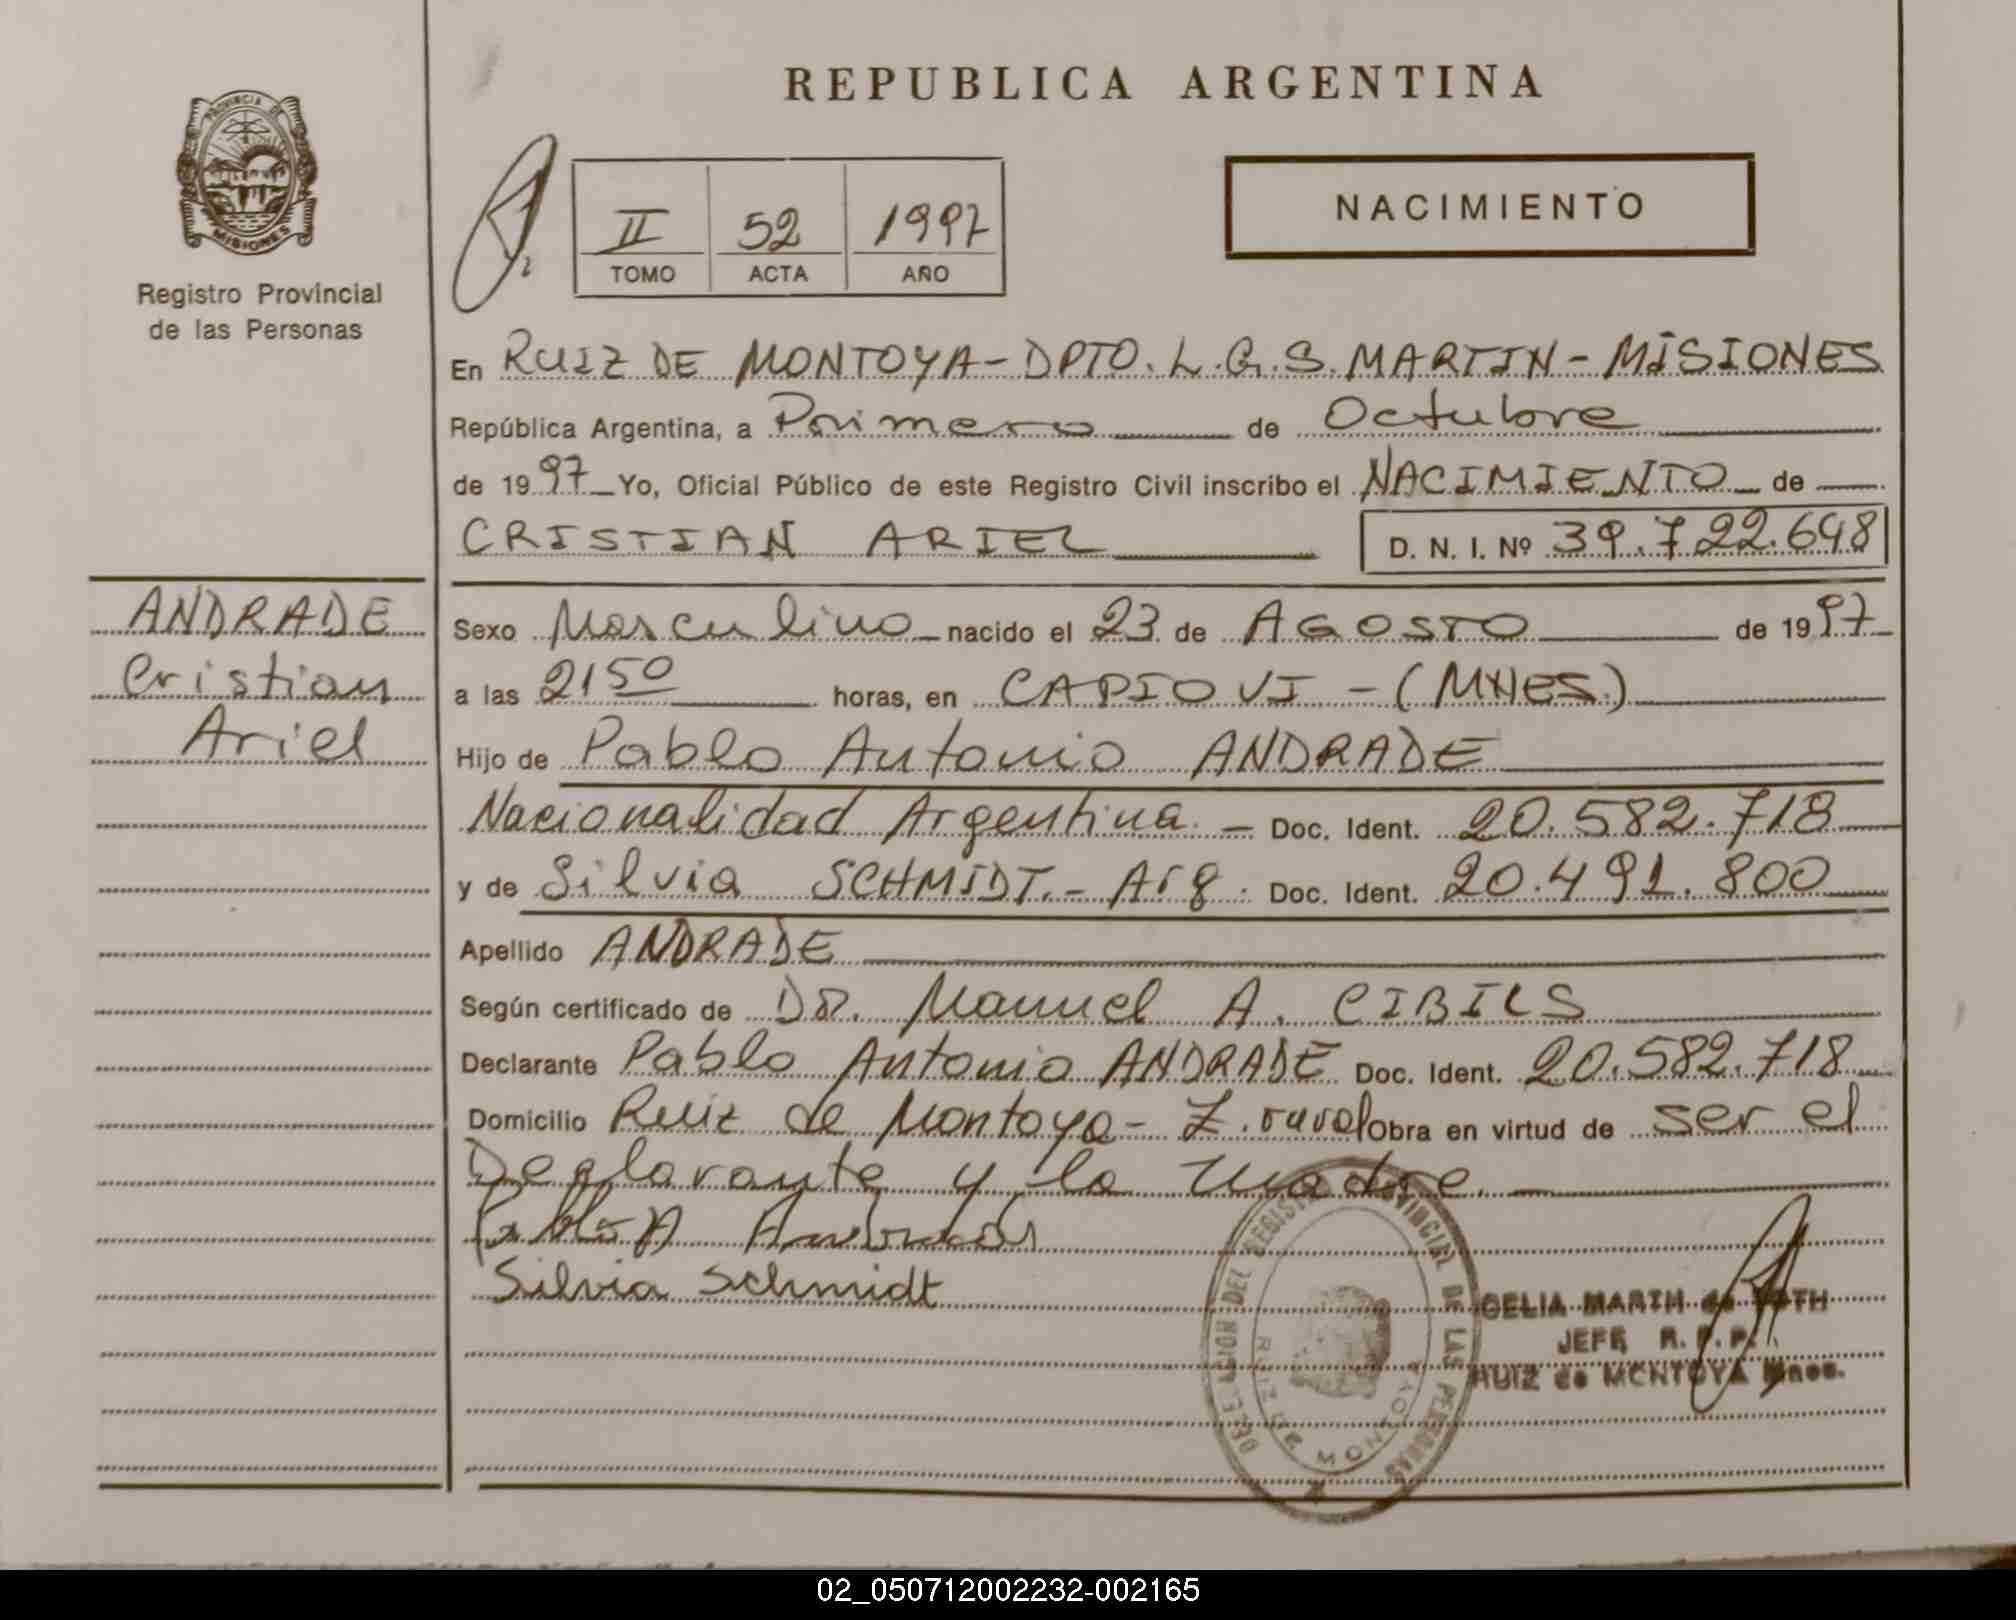 REPUBLICA ARGENTINA
PROVINCIA DE
MISIONES
Registro Provincial
de las Personas
II 52 1997
TOMO ACTA AÑO
NACIMIENTO
En RUIZ DE MONTOYA - DPTO. L.G.S. MARTIN - MISIONES
República Argentina, a Primero de Octubre
de 1997 Yo, Oficial Público de este Registro Civil inscribo el NACIMIENTO de
CRISTIAN ARIEL D. N. I. Nº 39.722.648
ANDRADE
Cristian
Ariel
Sexo Masculino nacido el 23 de AGOSTO de 1997
a las 2150 horas, en CAPIOVI - (MNES.)
Hijo de Pablo Antonio ANDRADE
Nacionalidad Argentina. - Doc. Ident. 20.582.718
y de Silvia SCHMIDT. - Arg. Doc. Ident. 20.491.800
Apellido ANDRADE
Según certificado de DR. Manuel A. CIBILS
Declarante Pablo Antonio ANDRADE Doc. Ident. 20.582.718
Domicilio Ruiz de Montoya - Z. rural Obra en virtud de ser el
Declarante y la madre.
Silvia Schmidt
DELEGACION DEL REGISTRO PROVINCIAL DE LAS PERSONAS
RUIZ DE MONTOYA
CELIA MARTH de
JEFE R. P. P.
RUIZ de MONTOYA Mnes.
02_050712002232-002165